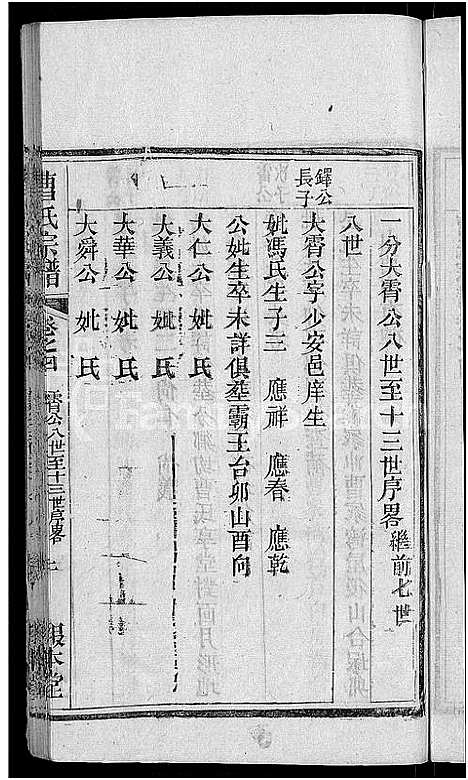 一分大霄公八世至十三世序畧 繼前七世
八世
鐸公長子
大霄公字少安邑庠生
妣馮氏生子三 應祥 應春 應乾
公妣生卒未詳俱塟霸王台卯山酉向
大仁公 妣 氏
大義公 妣 氏
大華公 妣 氏
大舜公 妣 氏
曹氏宗譜 卷之四 霄公八世至十三世序畧 報本堂